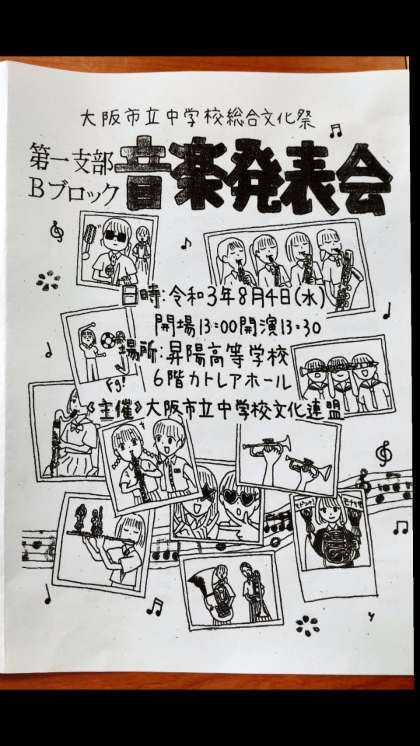 大阪市立中学校総合文化祭
第一支部
Bブロック
音楽発表会
日時:令和3年8月4日(水)
開場13:00開演13:30
場所:昇陽高等学校
6階カトレアホール
《主催》大阪市立中学校文化連盟